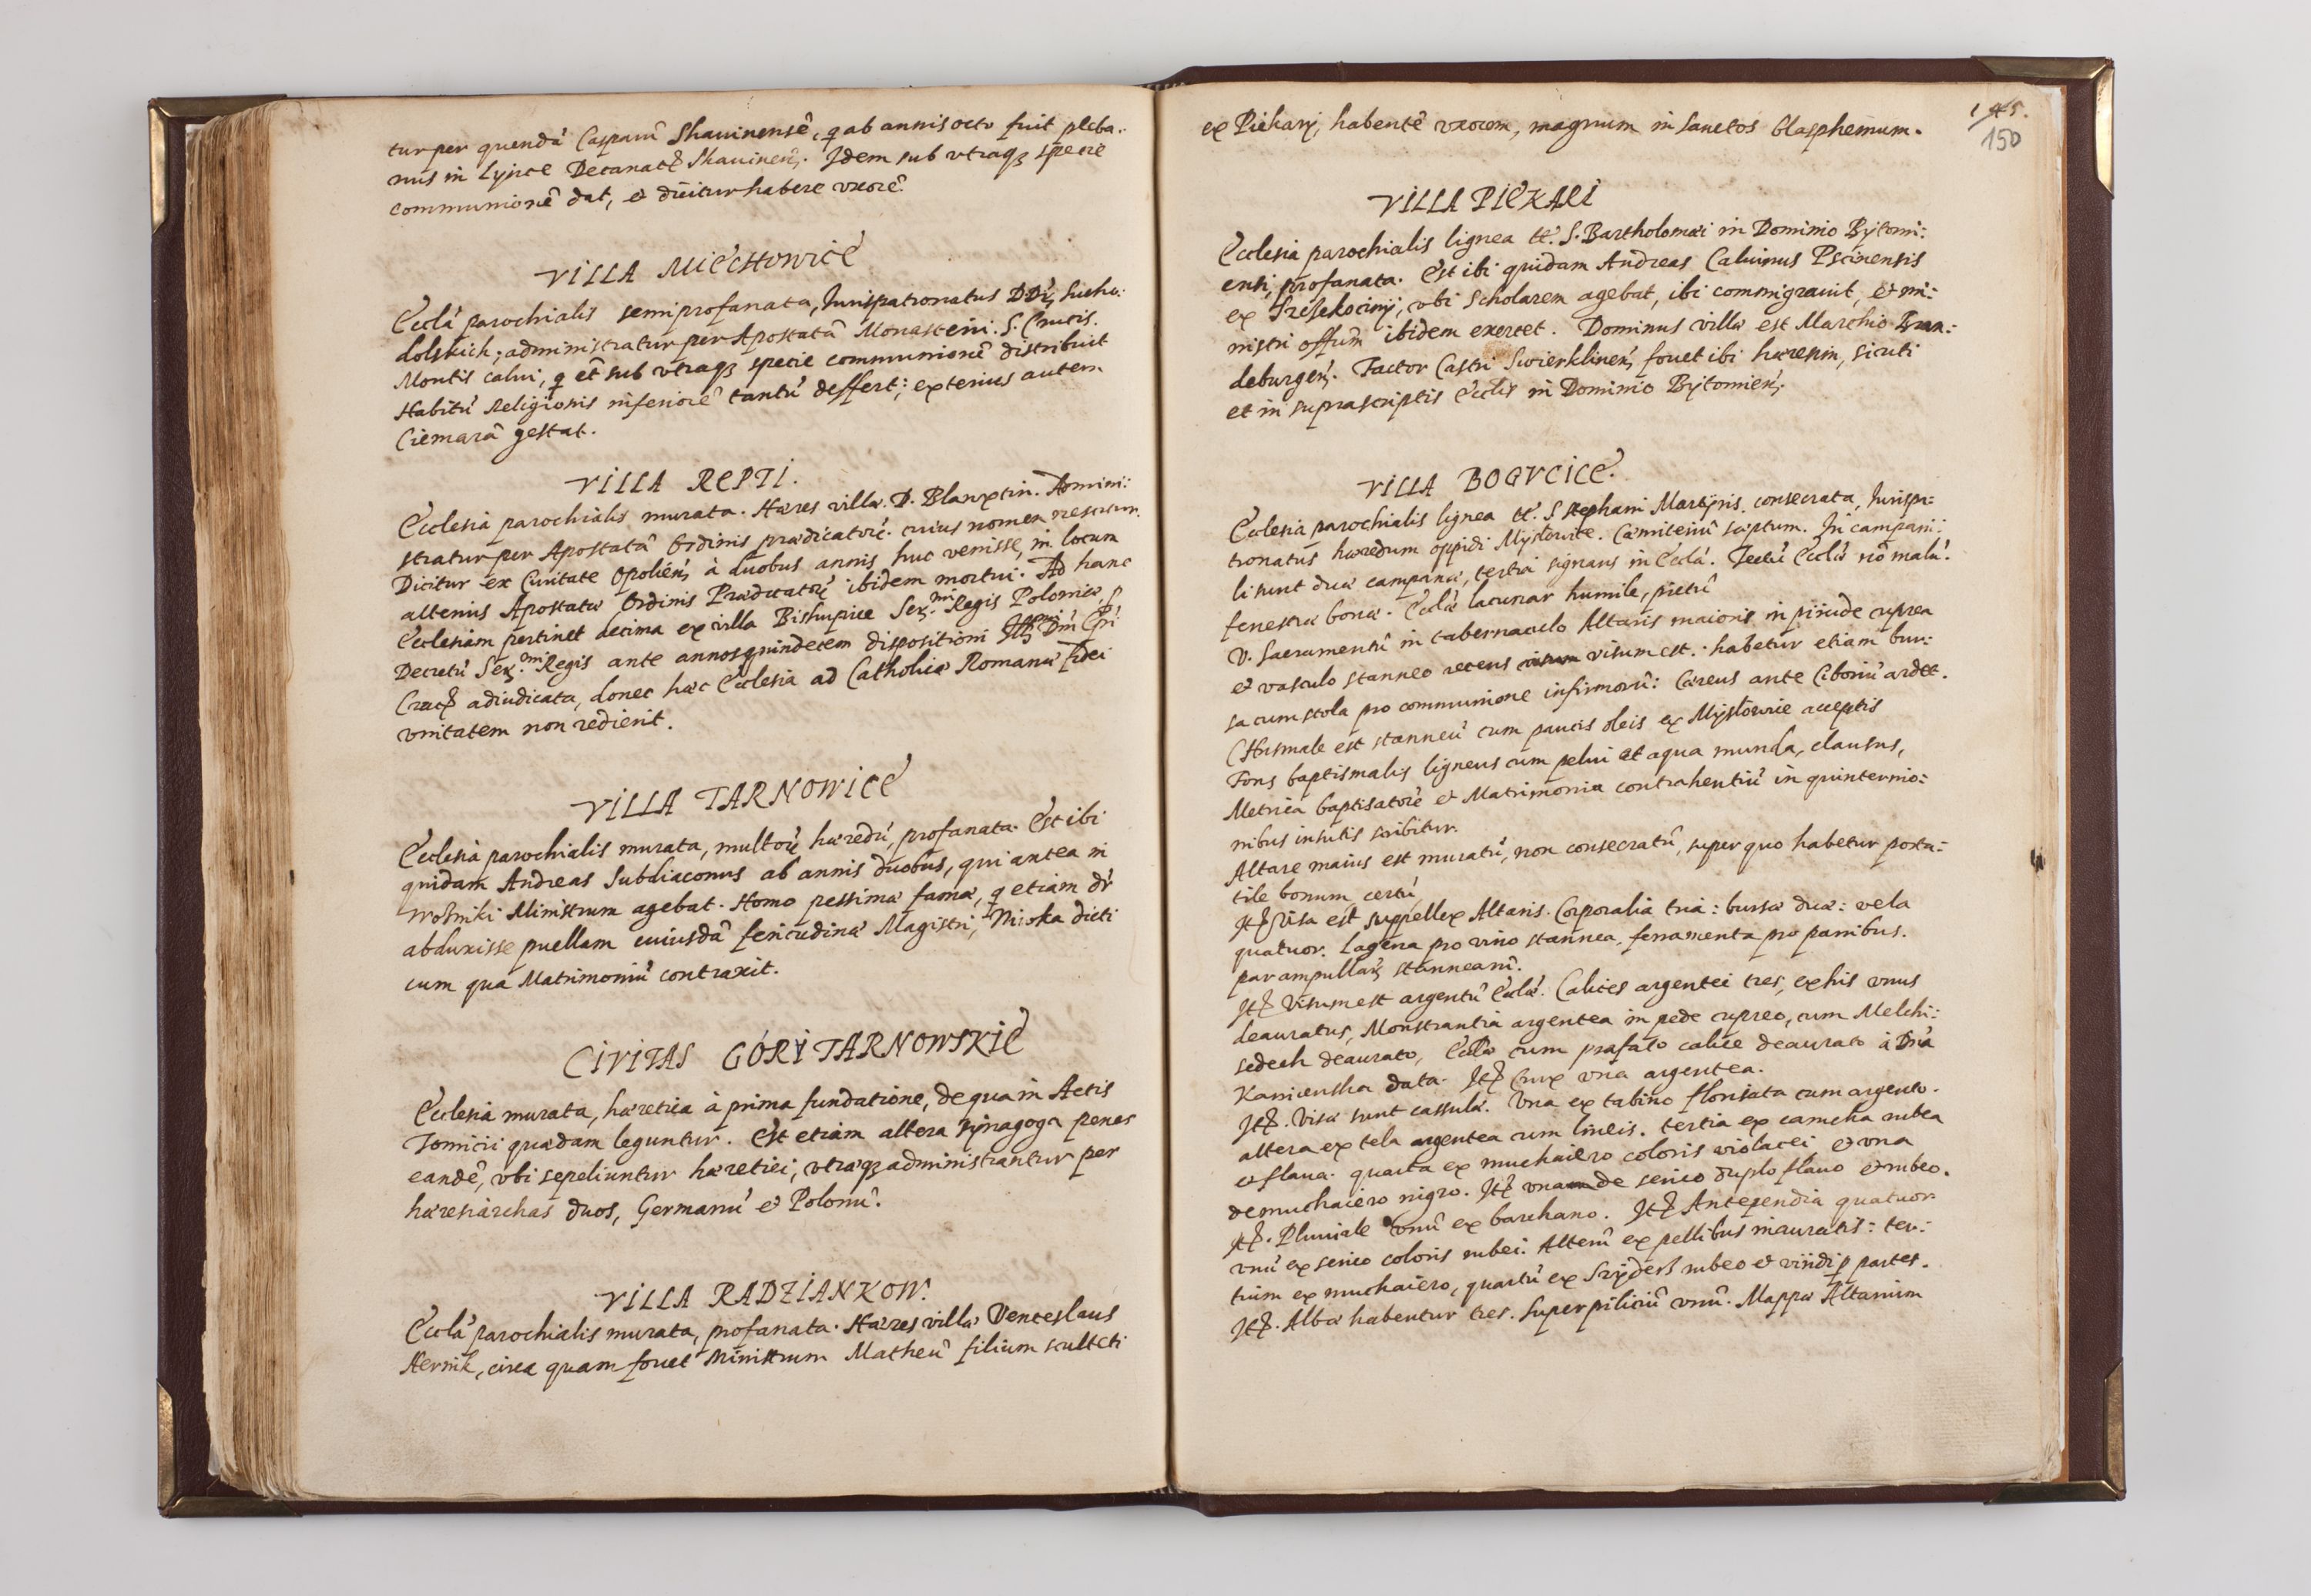 tur per quendá Casparû Skauinensê, q ab annis octo fuit pleba:
nus in Lyńce Decanatꝰ Skauineñ. Idem sub vtraqꝫ specie
communionê dat, et dicitur habere vxorê.
VILLA MIECHOWICE
Eccľa parochialis semiprofanata, Jurispatronatus DD. Sucho:
dolskich; administratur per Apostatâ Monasterij S. Crucis.
Montis calui, q et sub vtraqꝫ specie communionê distribuit
Habitû Religionis inferiorê tantû deffert; exterius autem
Ciemarâ gestat.
VILLA REPTI.
Ecclesia parochialis murata. Hæres villæ D. Blanxtin. Admini:
stratur per Apostatâ Ordinis prædicatorû. cuius nomen nescitur.
Dicitur ex Ciuitate Opolieñ à duobus annis huc venisse, in locum
alterius Apostatæ Ordinis Prædicatorû ibidem mortui. Ad hanc
Ecclesiam pertinet decima ex villa Biskupice Sereꝫ.mi Regis Poloniæ,
Decretû Sereꝫ.mi Regis ante annos quindecem dispositioni Dñi Epi
Cracꝫ adiudicata, donec hæc Ecclesia ad Catholicæ Romanæ fidei
vnitatem non redierit.
VILLA TARNOWICE
Ecclesia parochialis murata, multorû hæredû, profanata. Est ibi
quidam Andreas Subdiaconus ab annis duobus, qui antea in
Woźniki Ministrum agebat. Homo pessimæ famæ, q etiam dr̃
abduxisse puellam cuiusdâ fericudinæ Magistri, Nioska dicti
cum qua Matrimoniû contraxit.
CIVITAS GÓRI TARNOWSKIE
Ecclesia murata, hæretica à prima fundatione, de qua in Actis
Tomicii quædam leguntur. Est etiam altera synagoga penes
eandê, vbi sepeliuntur hæretici; vtræqꝫ administrantur per
hæresiarchas duos, Germanû et Polonû.
VILLA RADZIANKOW.
Eccľa parochialis murata, profanata. Hæres villæ Venceslaus
Hernik, circa quam fouet Ministrum Matheû filium sculteti
145.
150
ex Piekary, habentê vxorem, magnum in Sanctos blasphemum.
VILLA PIEKARI
Ecclesia parochialis lignea tt. S. Bartholomæi in Dominio Bytomi:
ensi, profanata. Est ibi quidam Andreas Caluinus Pscinensis
ex Szczekociny, vbi Scholarem agebat, ibi commigrauit, et mi:
nistri offum ibidem exercet. Dominus villæ est Marchio Bran:
deburgeñ. Factor Castri Swierklineñ fouet ibi hæresin, sicuti
et in suprascriptis Eccľis in Dominio Bytomieñ.
VILLA BOGVCICE.
Ecclesia parochialis lignea tt. S Stephani Martyris, consecrata, Jurispa:
tronatus hæredum oppidi Myslowice. Cæmiteriû sæptum. In campani:
li sunt duæ campanæ, tertia signans in Eccľa. Tectû Eccľæ nô malû.
fenestræ bonæ. Eccľæ lacunar humile, pictû
V. Sacramentû in tabernaculo Altaris maioris in pixide cuprea
et vasculo stanneo recens visum est. habetur etiam bur:
sa cum stola pro communione infirmorû: Cæreus ante Ciboriû ardet.
Chrismale est stanneû cum paucis oleis ex Myslowice acceptis
Fons baptismalis ligneus cum pelui et aqua munda, clausus,
Metrica baptisatorû et Matrimonia contrahentiû in quinternio:
nibus insutis scribitur.
Altare maius est muratû, non consecratû, super quo habetur porta:
tile bonum, certû,
Itꝫ visa est suppellex Altaris. Corporalia tria: bursæ duæ: vela
quatuor. Lagena pro vino stannea, ferramenta pro panibus.
par ampullarꝫ stannearû.
Itꝫ Visum est argentû Eccľæ. Calices argentei tres, ex his vnus
deauratus, Monstrantia argentea in pede cupreo, cum Melchi:
sedech deaurato, Eccľæ cum præfato calice deaurato à Dña
Kamienska data. Itꝫ Crux vna argentea.
Itꝫ. Visæ sunt cassulæ. Vna ex tabino florisata cum argento.
altera ex tela argentea cum lineis. tertia ex camcha rubea
et flaua. quarta ex muchaiero coloris violacei et vna
de muchaiero nigro. Itꝫ vna de serico duplo flauo et rubeo.
Itꝫ. Pluuiale vnû ex barchano. Itꝫ Antependia quatuor
vnû ex serico coloris rubei. Alterû ex pellibus inauratis: ter:
tium ex muchaiero, quartû ex rubeo et viridi p partes.
Itꝫ. Albæ habentur tres. Superpiliciû vnû. Mappæ Altarium